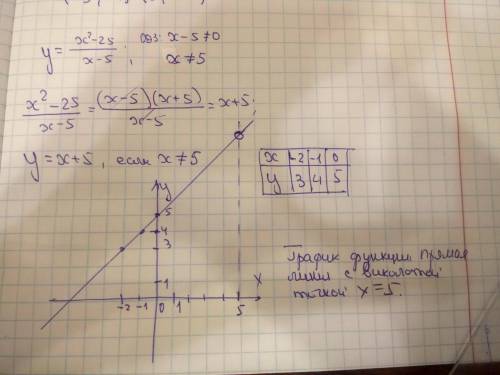 y = x²-25 / x-5 ; ОДЗ: x-5≠0
x≠5
x²-25 / x-5 = (x-5)(x+5) / x-5 = x+5;
y = x+5, если x≠5
x -2 -1 0
y 3 4 5
y
5
4
3
1
x
-2 -1 0 1 5
График функции прямая
линия с виколотой
точкой x=5.